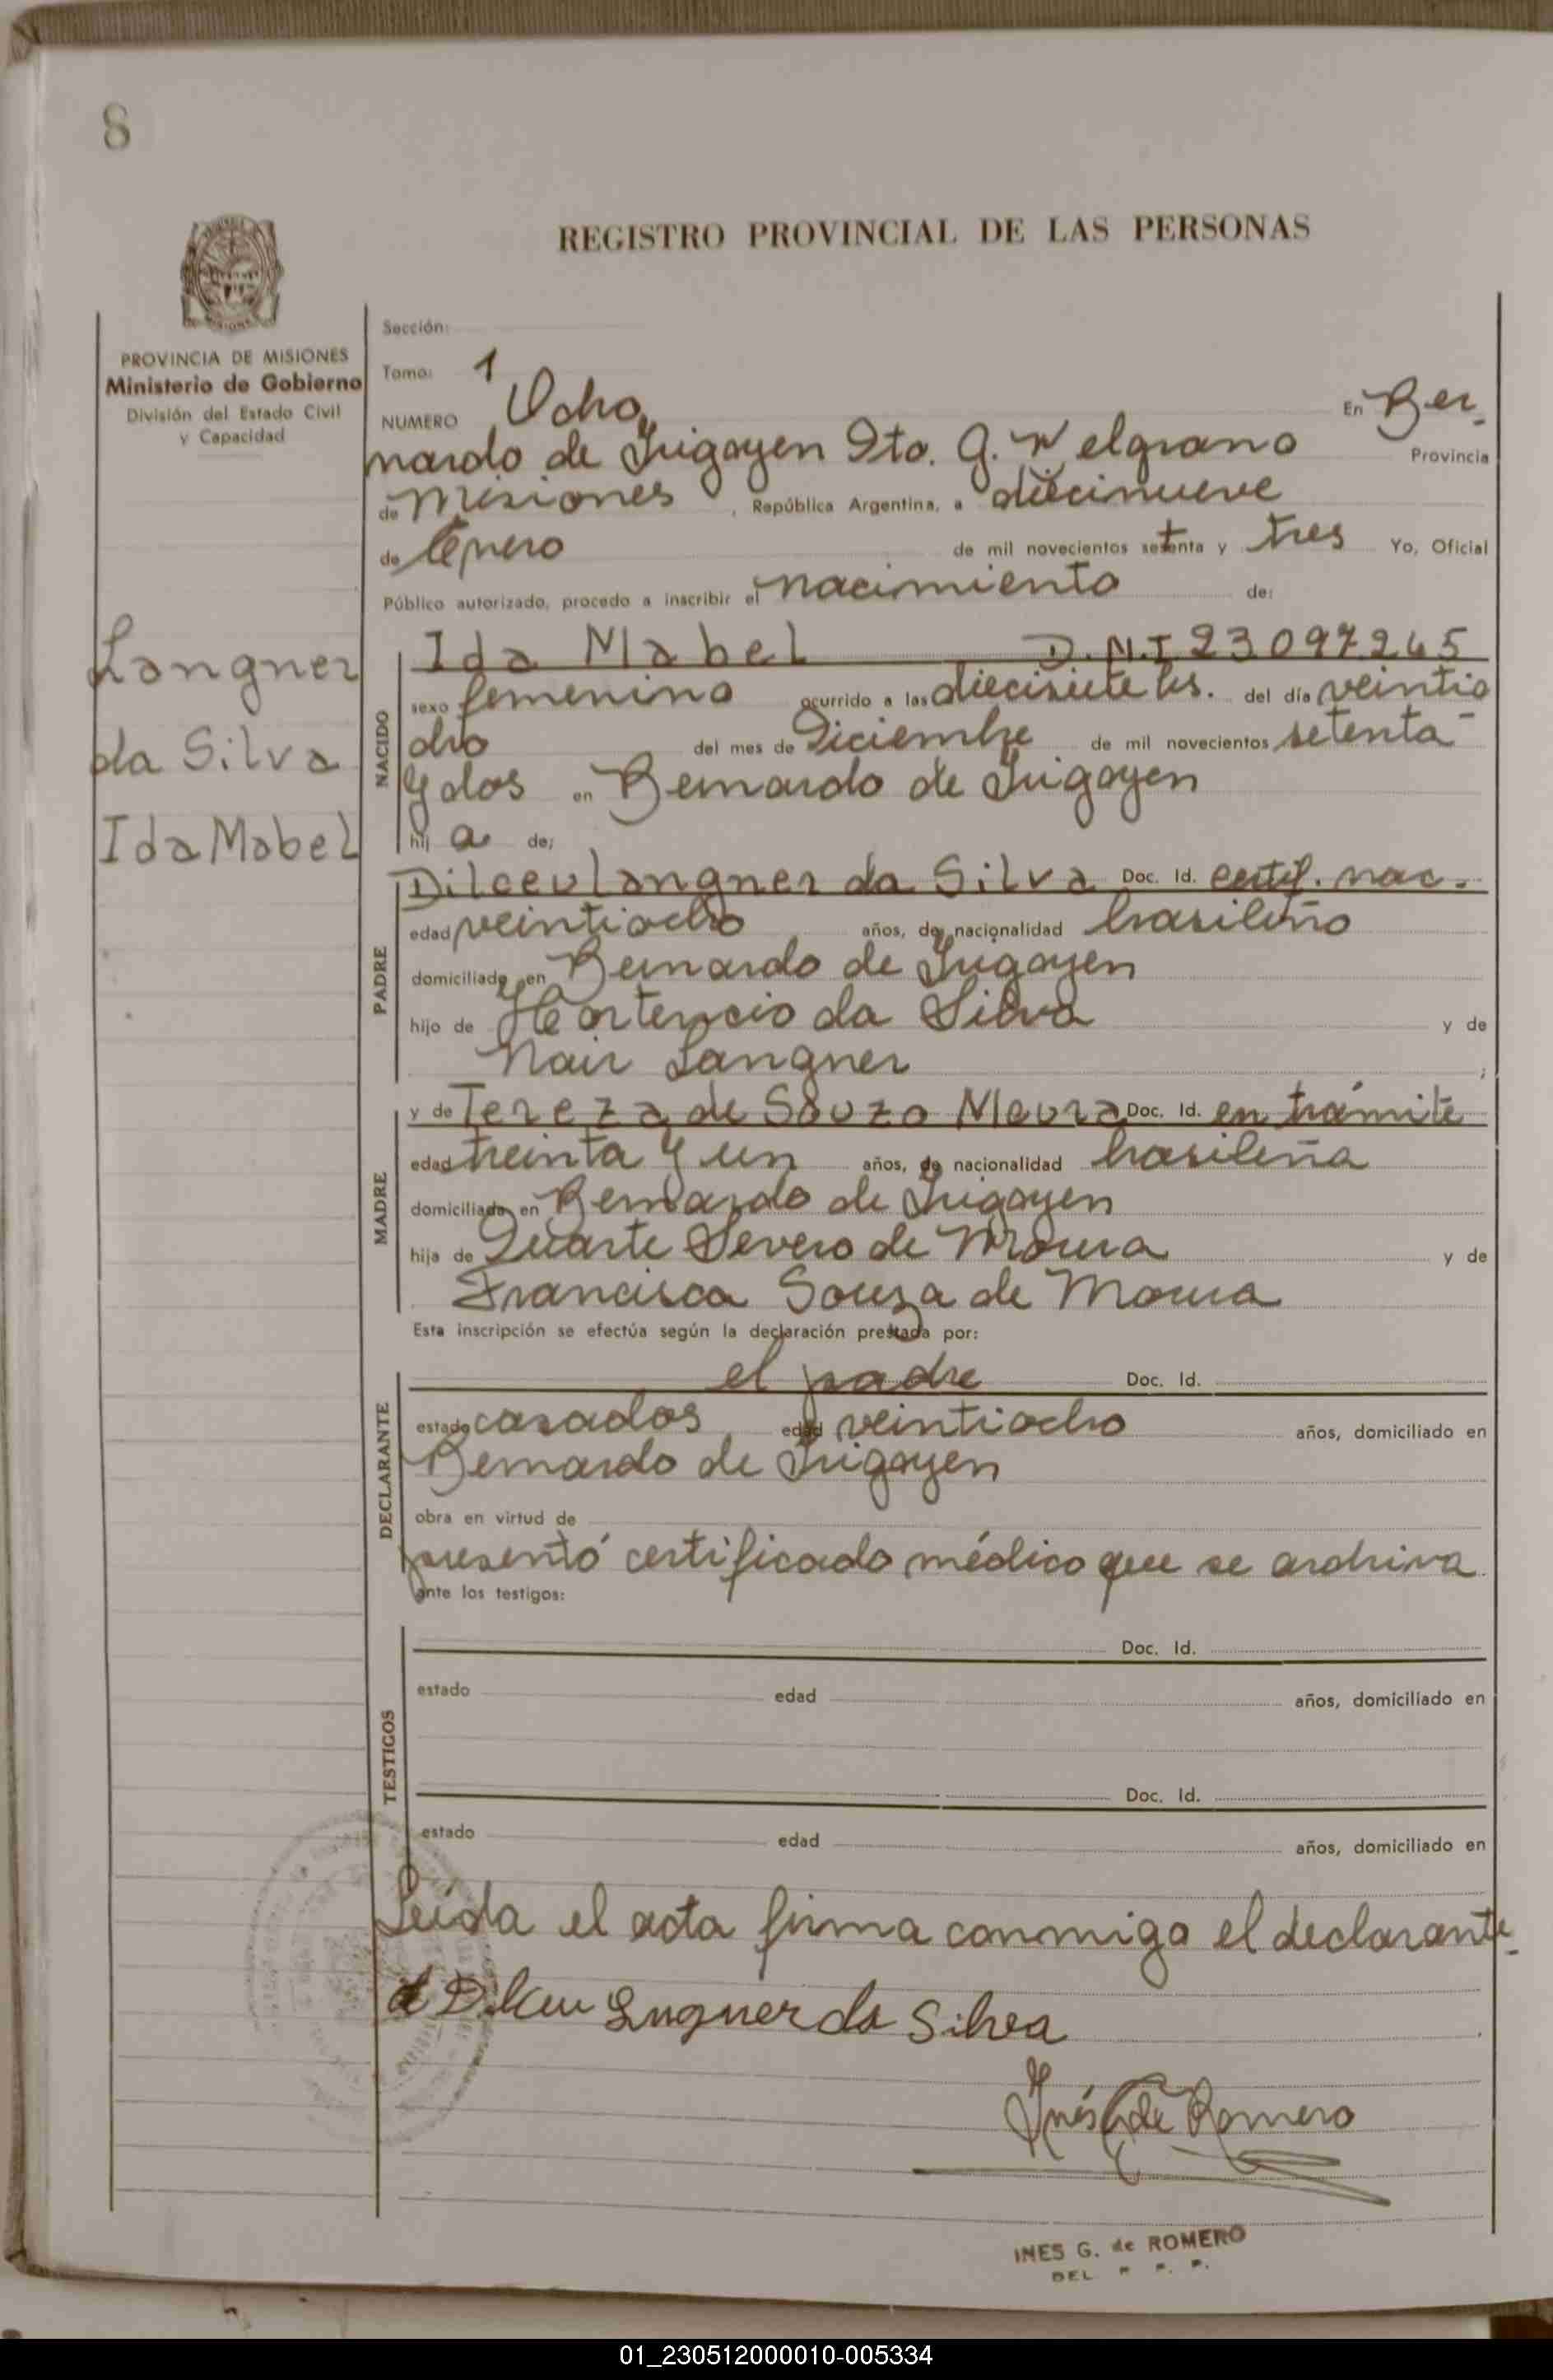 8
REGISTRO PROVINCIAL DE LAS PERSONAS
PROVINCIA DE MISIONES
Ministerio de Gobierno
División del Estado Civil
y Capacidad
Sección:
Tomo: 1
NUMERO Ocho, En Ber-
nardo de Irigoyen Dto. G. M Belgrano Provincia
de Misiones, República Argentina, a diecinueve
de Enero de mil novecientos setenta y tres Yo, Oficial
Público autorizado, procedo a inscribir el nacimiento de:
Langner
da Silva
Ida Mabel
NACIDO
Ida Mabel D.N.I 23097265
sexo femenino ocurrido a las diecisiete hs. del día veintio
cho del mes de Diciembre de mil novecientos setenta
y dos en Bernardo de Irigoyen
hij a de:
PADRE
Dilceu Langner da Silva Doc. Id. certif. nac.
edad veintiocho años, de nacionalidad brasileño
domiciliado en Bernardo de Irigoyen
hijo de Hortencio da Silva y de
Nair Langner ;
MADRE
y de Tereza de Souza Moura Doc. Id. en trámite
edad treinta y un años, de nacionalidad brasileña
domiciliada en Bernardo de Irigoyen
hija de Duarte Severo de Moura y de
Francisca Souza de Moura
Esta inscripción se efectúa según la declaración prestada por:
DECLARANTE
el padre Doc. Id.
estado casados edad veintiocho años, domiciliado en
Bernardo de Irigoyen
obra en virtud de
presentó certificado médico que se archiva
ante los testigos:
TESTIGOS
Doc. Id.
estado edad años, domiciliado en
Doc. Id.
estado edad años, domiciliado en
Leída el acta firma conmigo el declarante-
Dilceu Langner da Silva
Inés G de Romero
INES G. de ROMERO
DEL R. P. P.
01_230512000010-005334